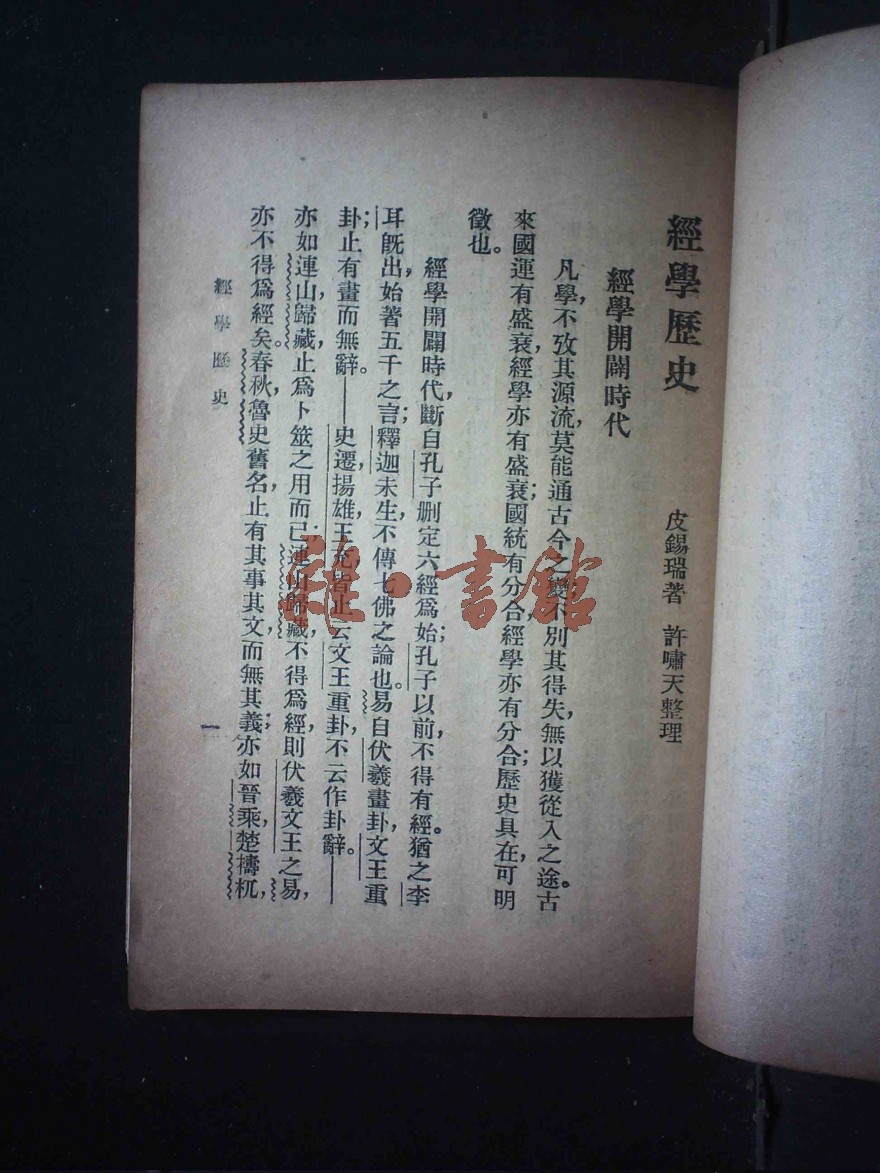 經學歷史
皮錫瑞著 許嘯天整理
經學開闢時代
凡學,不攷其源流,莫能通古今之變;不別其得失,無以獲從入之途。古
來國運有盛衰,經學亦有盛衰;國統有分合,經學亦有分合;歷史具在,可明
徵也。
經學開闢時代,斷自孔子删定六經爲始;孔子以前,不得有經。猶之李
耳旣出,始著五千之言;釋迦未生,不傳七佛之論也。易自伏羲畫卦,文王重
卦;止有畫而無辭。——史遷,揚雄,王充,皆止云文王重卦,不云作卦辭。——
亦如連山歸藏,止爲卜筮之用而已;連山歸藏,不得爲經,則伏羲文王之易,
亦不得爲經矣。春秋,魯史舊名,止有其事其文而無其義;亦如晉乘,楚檮杌,
經學歷史
一
雜·書館